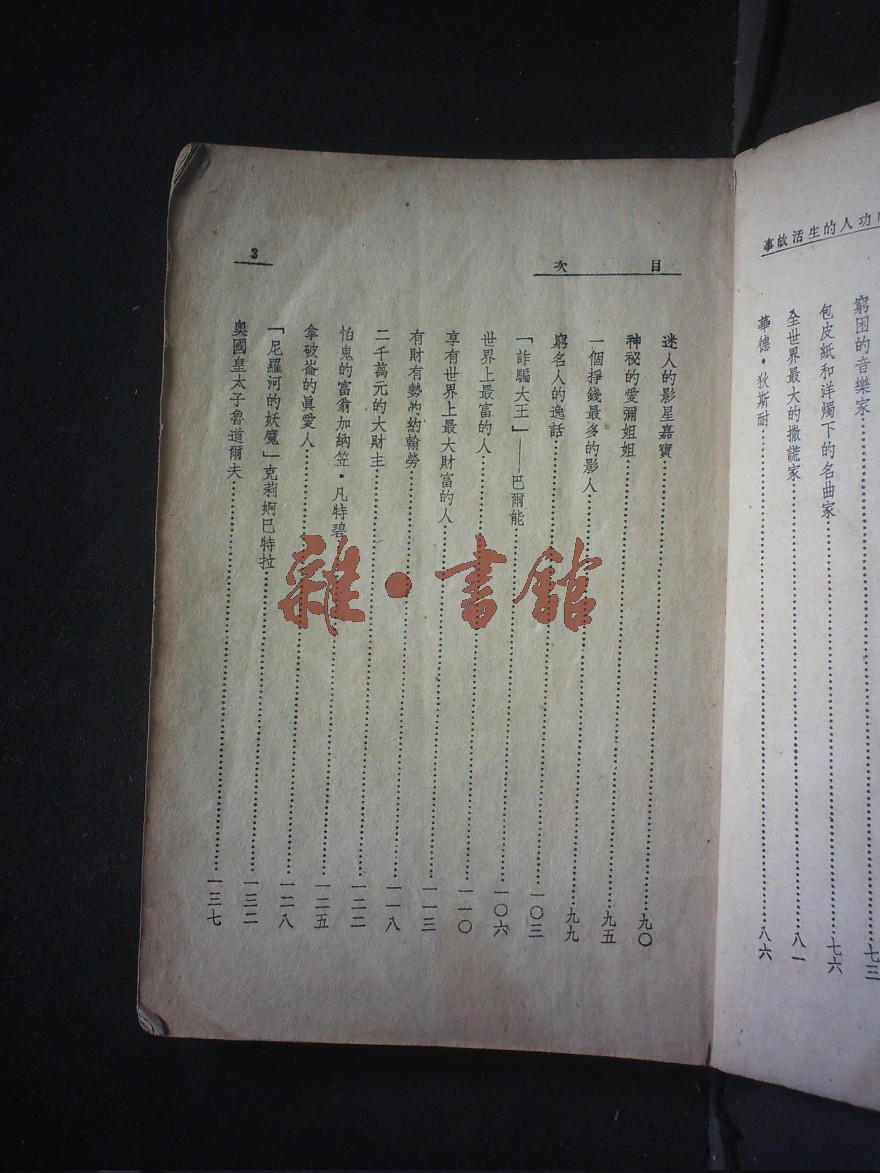 功人的生活故事
窮困的音樂家…………七三
包皮紙和洋燭下的名曲家…………七六
全世界最大的撒謊家…………八一
華德・狄斯耐…………八六
目次
3
迷人的影星嘉寶…………九〇
神祕的愛彌姐姐…………九五
一個掙錢最多的影人…………九九
窮名人的逸話…………一〇三
「詐騙大王」——巴爾能…………一〇六
世界上最富的人…………一一〇
享有世界上最大財富的人…………一一三
有財有勢的約翰勞…………一一八
二千萬元的大財主…………一二二
怕鬼的富翁加納笠・凡特碧…………一二五
拿破崙的眞愛人…………一二八
「尼羅河的妖魔」克莉婀巴特拉…………一三二
奧國皇太子魯道爾夫…………一三七
雜・書館